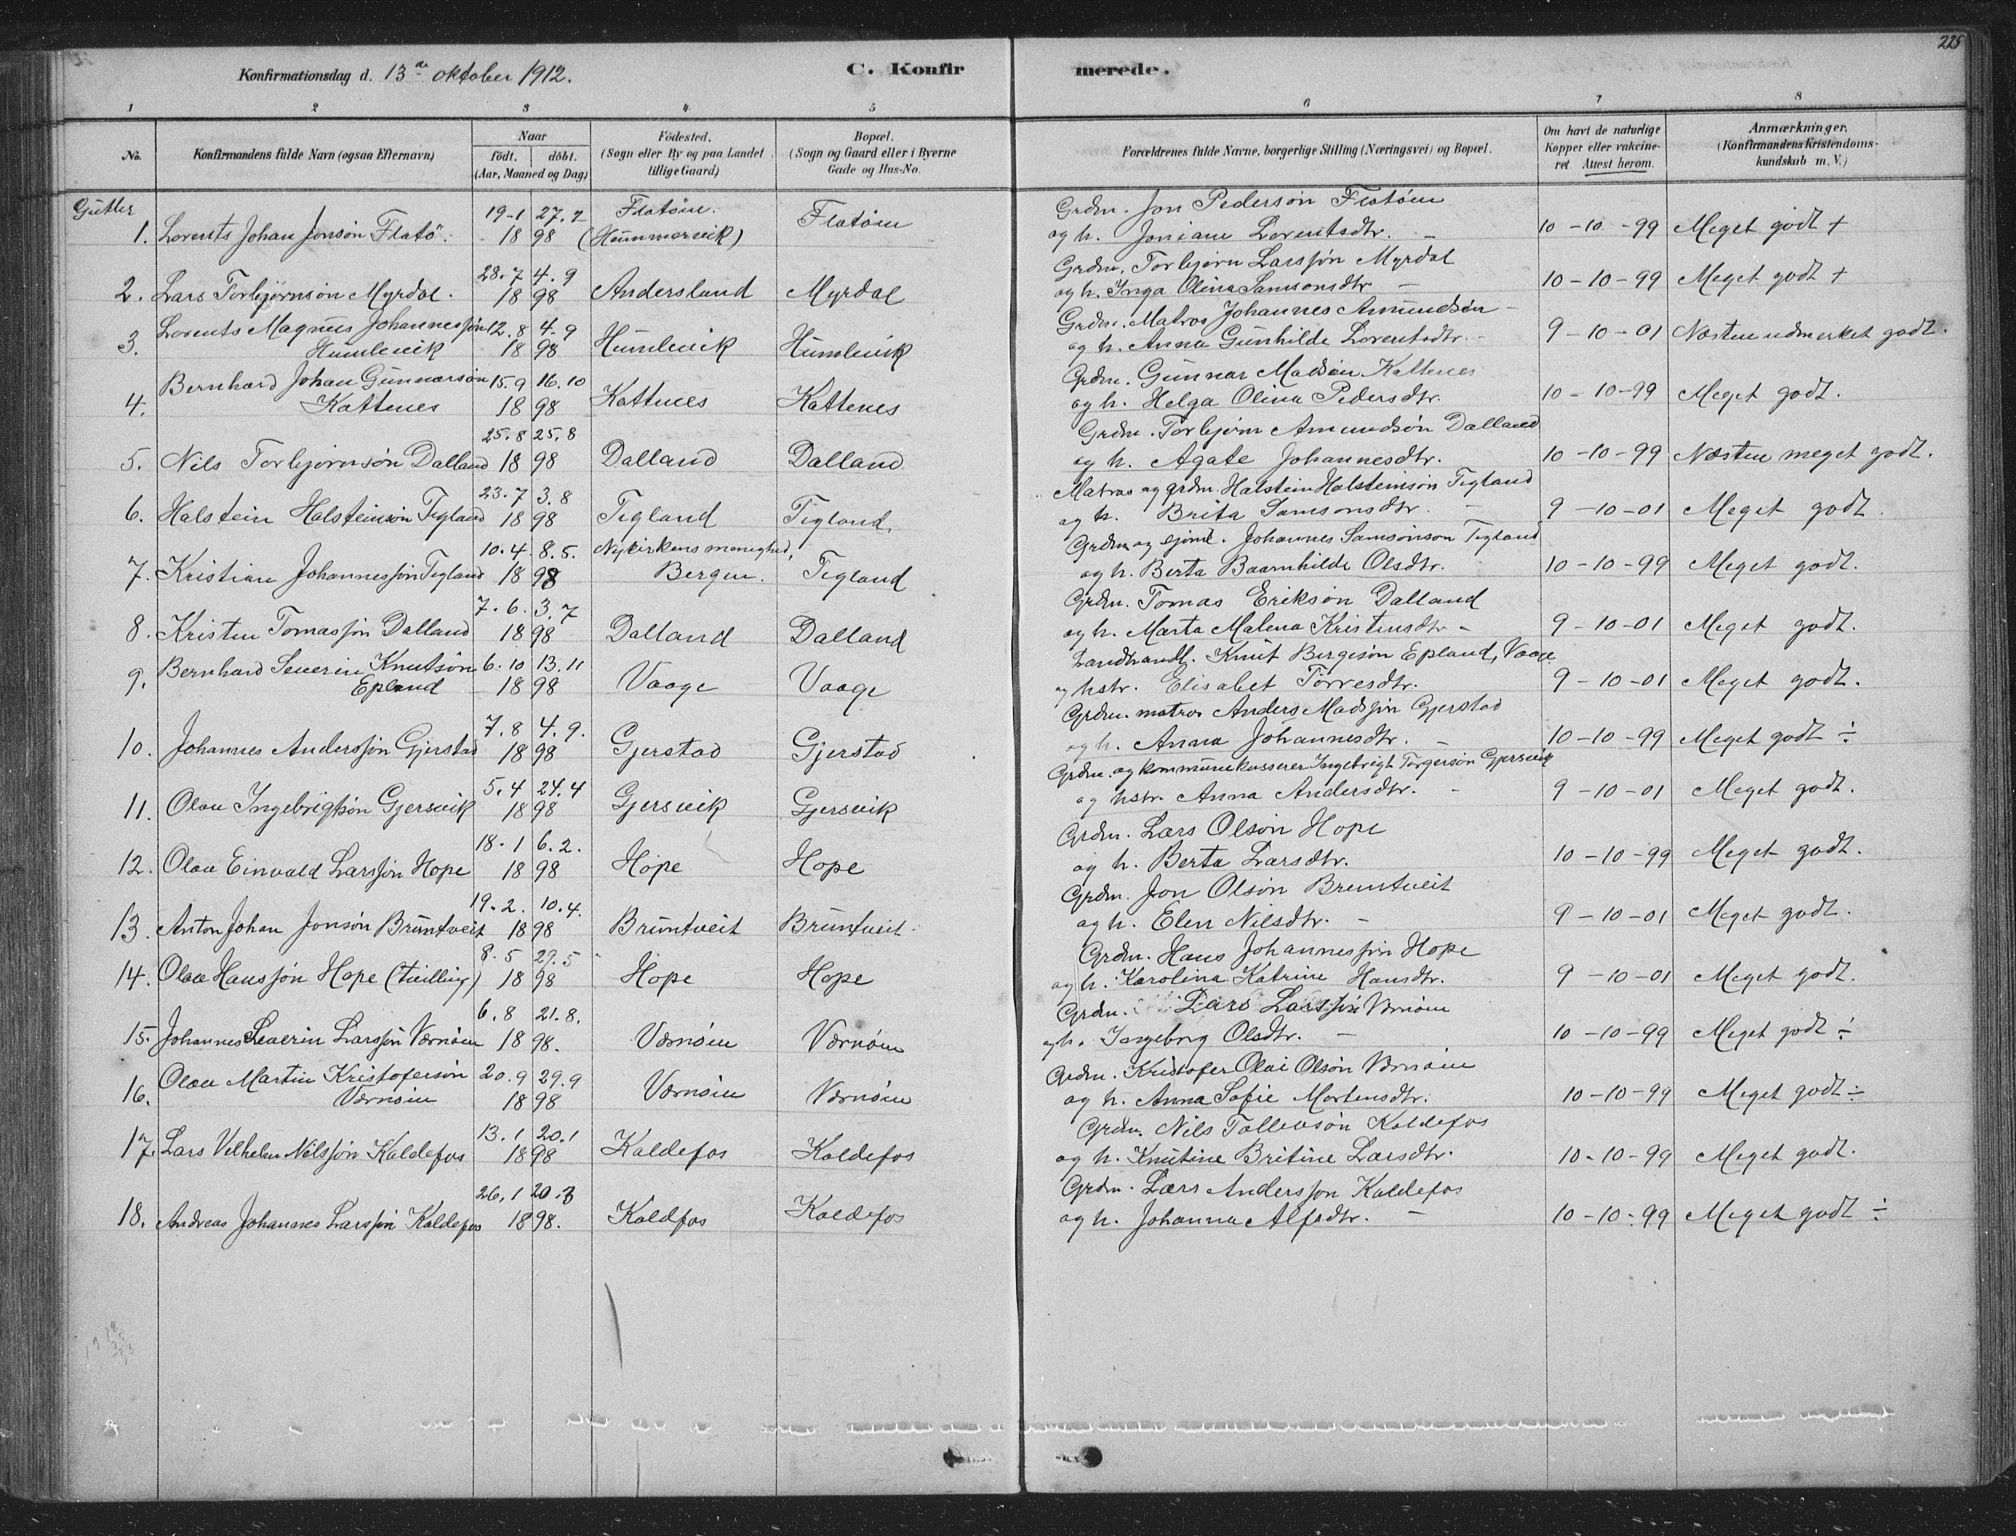 225
Konfirmationsdag d. 13de oktober 1912.
C. Konfirmerede.
1 2 3 4 5 6 7 8
No. Konfirmandens fulde Navn (ogsaa Efternavn) Naar født. døbt. (Aar, Maaned og Dag) Fødested. (Sogn eller By og paa Landet tillige Gaard) Bopæl. (Sogn og Gaard eller i Byerne Gade og Hus-No. Forældrenes fulde Navne, borgerlige Stilling (Næringsvei) og Bopæl. Om havt de naturlige Kopper eller vakcineret Attest herom. Anmærkninger. (Konfirmandens Kristendomskundskab m. V.)
Gutter
19-1 27.2 Flatøen. Grdm. Jon Pedersøn Flatøen
1. Lorents Johan Jonsøn Flatø. 18 98 (Hummervik) Flatøen og h. Joniane Lorentsdtr. – 10-10-99 Meget godt +
28.7 4.9 Grdm. Torbjørn Larssøn Myrdal
2. Lars Torbjørnsøn Myrdal. 18 98 Andersland Myrdal og h. Inga Olina Samsonsdtr – 10-10-99 Meget godt +
Lorents Magnus Johannessøn 12.8 4.9 Grdm. Matros Johannes Amundsøn –
3. Humlevik 18 98 Humlevik Humlevik og h. Anna Gunhilde Lorentsdtr. – 9-10-01 Næsten udmerket godt.
Bernhard Johan Gunnarsøn 15.9 16.10 Grdm. Gunnar Madsøn Kattenes
4. Kattenes 18 98 Kattenes Kattenes og h. Helga Olina Pedersdtr. 10-10-99 Meget godt.
25.8 25.8 Grdm. Torbjørn Amundsøn Dalland
5. Nils Torbjørnsøn Dalland 18 98 Dalland Dalland og h. Agate Johannesdtr. 10-10-99 Næsten meget godt.
23.7 3.8 Matros og grdm. Halstein Halsteinsøn Tigland
6. Halstein Halsteinsøn Tigland 18 98 Tigland Tigland og h. Brita Samsonsdtr. – 9-10-01 Meget godt.
10.4 8.5. Nykirkens menighed, Grdm og sjømd. Johannes Samsonsøn Tigland
7. Kristian Johannessøn Tigland 18 98 Bergen. Tigland og h. Berta Baarnhilde Olsdtr. 10-10-99 Meget godt.
7.6. 3.7 Grdm. Tomas Eriksøn Dalland
8. Kristen Tomassøn Dalland 18 98 Dalland Dalland og h. Marta Malena Kristensdtr – 9-10-01 Meget godt.
Bernhard Severin Knutsøn 6.10 13.11 Landhandl. Knut Bergesøn Epland, Vaage
9. Epland 18 98 Vaage Vaage og hstr. Elisabet Torresdtr. 9-10-01 Meget godt.
7.8 4.9. Grdm. matros Anders Madssøn Gjerstad
10. Johannes Anderssøn Gjerstad 18 98 Gjerstad Gjerstad og h. Anna Johannesdtr. – 10-10-99 Meget godt ÷
5.4 24.4 Grdm. og kommunekasserer Ingebrigt Torgersøn Gjersvik
11. Olav Ingebrigtsøn Gjersvik 18 98 Gjersvik Gjersvik og hstr. Anna Andersdtr. – 9-10-01 Meget godt.
18.1 6.2. Grdm. Lars Olsøn Hope
12. Olav Einvald Larssøn Hope 18 98 Hope Hope og h. Berta Larsdtr. 10-10-99 Meget godt.
19.2. 10.4. Grdm. Jon Olsøn Bruntveit
13. Anton Johan Jonsøn Bruntveit 18 98 Bruntveit Bruntveit. og h. Elen Nilsdtr. – 9-10-01 Meget godt.
8.5 29.5 Grdm. Hans Johannessøn Hope
14. Olav Hanssøn Hope (tvilling) 18 98 Hope Hope og h. Karolina Katrine Hansdtr. 9-10-01 Meget godt.
6.8 21.8. Grdm. Lars Larssøn Værnøen
15. Johannes Severin Larssøn Værnøen 18 98. Værnøen Værnøen og h. Ingeborg Olsdtr. – 10-10-99 Meget godt ÷
Olav Martin Kristofersøn 20.9 29.9 Grdm. Kristofer Olai Olsøn Værnøen
16. Værnøen 18 98 Værnøen Værnøen og h. Anna Sofie Mortensdtr. 10-10-99 Meget godt ÷
13.1 20.1 Grdm. Nils Tollevsøn Kaldefos
17. Lars Vilhelm Nilssøn Kaldefos 18 98 Kaldefos Kaldefos og h. Knutine Britine Larsdtr. 10-10-99 Meget godt.
26.1 20.3 Grdm. Lars Anderssøn Kaldefos
18. Andreas Johannes Larssøn Kaldefos 18 98. Kaldfos Kaldefos og h. Johanna Alfsdtr. – 10-10-99 Meget godt ÷